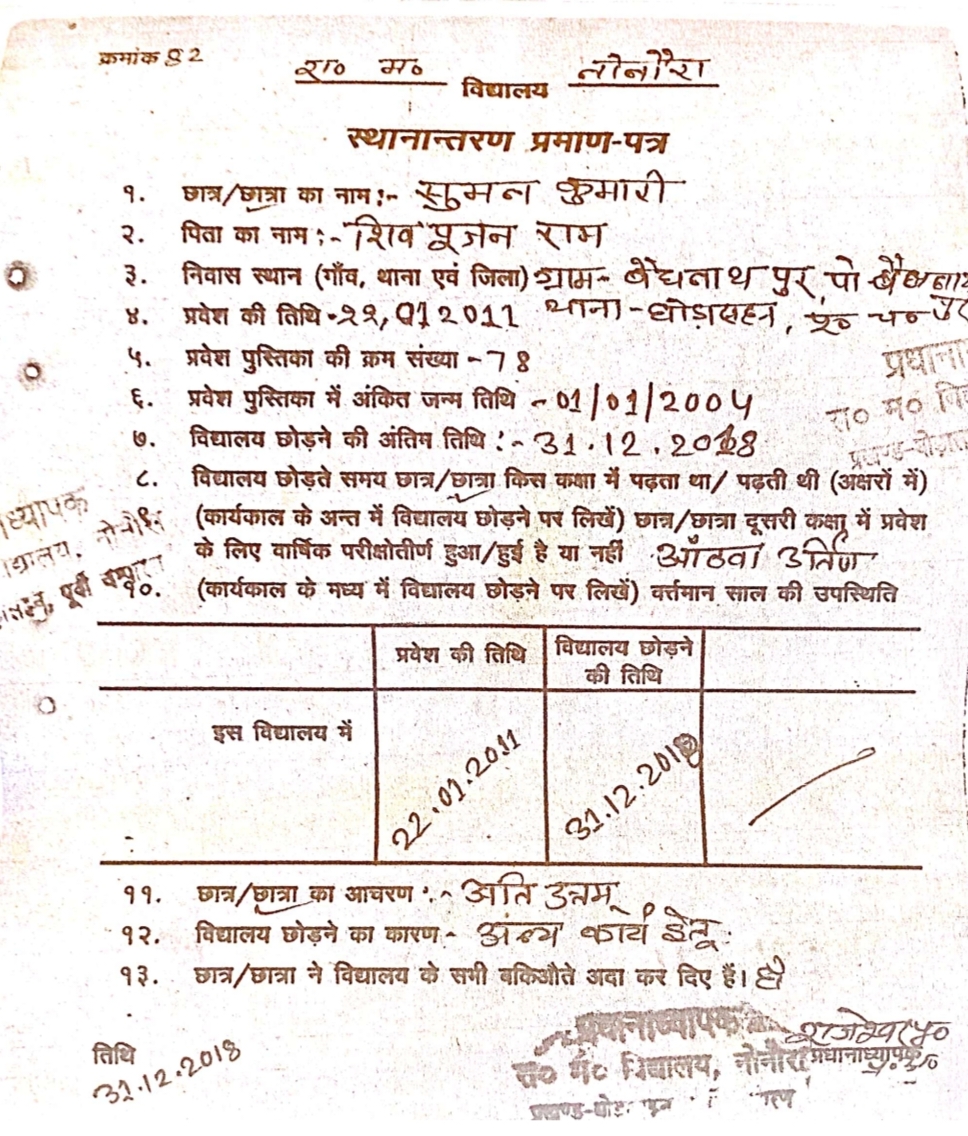 क्रमांक 82
रा० म० विद्यालय नोनौरा
स्थानान्तरण प्रमाण-पत्र
१. छात्र/छात्रा का नाम :- सुमन कुमारी
२. पिता का नाम :- शिव पूजन राम
३. निवास स्थान (गाँव, थाना एवं जिला) ग्राम- बैधनाथ पुर, पो-बैधनाथ पुर
४. प्रवेश की तिथि - 22,01 2011 थाना - घोड़ासहन, पू० च०
५. प्रवेश पुस्तिका की क्रम संख्या - 78
६. प्रवेश पुस्तिका में अंकित जन्म तिथि - 01/01/2004
७. विद्यालय छोड़ने की अंतिम तिथि :- 31.12.2018
८. विद्यालय छोड़ते समय छात्र/छात्रा किस कक्षा में पढ़ता था/ पढ़ती थी (अक्षरों में)
९. (कार्यकाल के अन्त में विद्यालय छोड़ने पर लिखें) छात्र/छात्रा दूसरी कक्षा में प्रवेश
के लिए वार्षिक परीक्षोतीर्ण हुआ/हुई है या नहीं आँठवा उर्तिण
१०. (कार्यकाल के मध्य में विद्यालय छोड़ने पर लिखें) वर्त्तमान साल की उपस्थिति
प्रवेश की तिथि
विद्यालय छोड़ने
की तिथि
इस विद्यालय में
22.01.2011
31.12.2018
११. छात्र/छात्रा का आचरण :- अति उत्तम
१२. विद्यालय छोड़ने का कारण - अन्य कार्य हेतू
१३. छात्र/छात्रा ने विद्यालय के सभी बकिऔते अदा कर दिए हैं। हाँ
तिथि
31.12.2018
प्रधानाध्यापक
रा० म० विद्यालय, नोनौरा
प्रधानाध्यापक